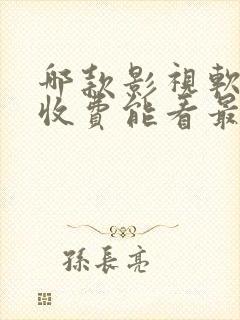 那款影視軟
收費能看最
孫長亮